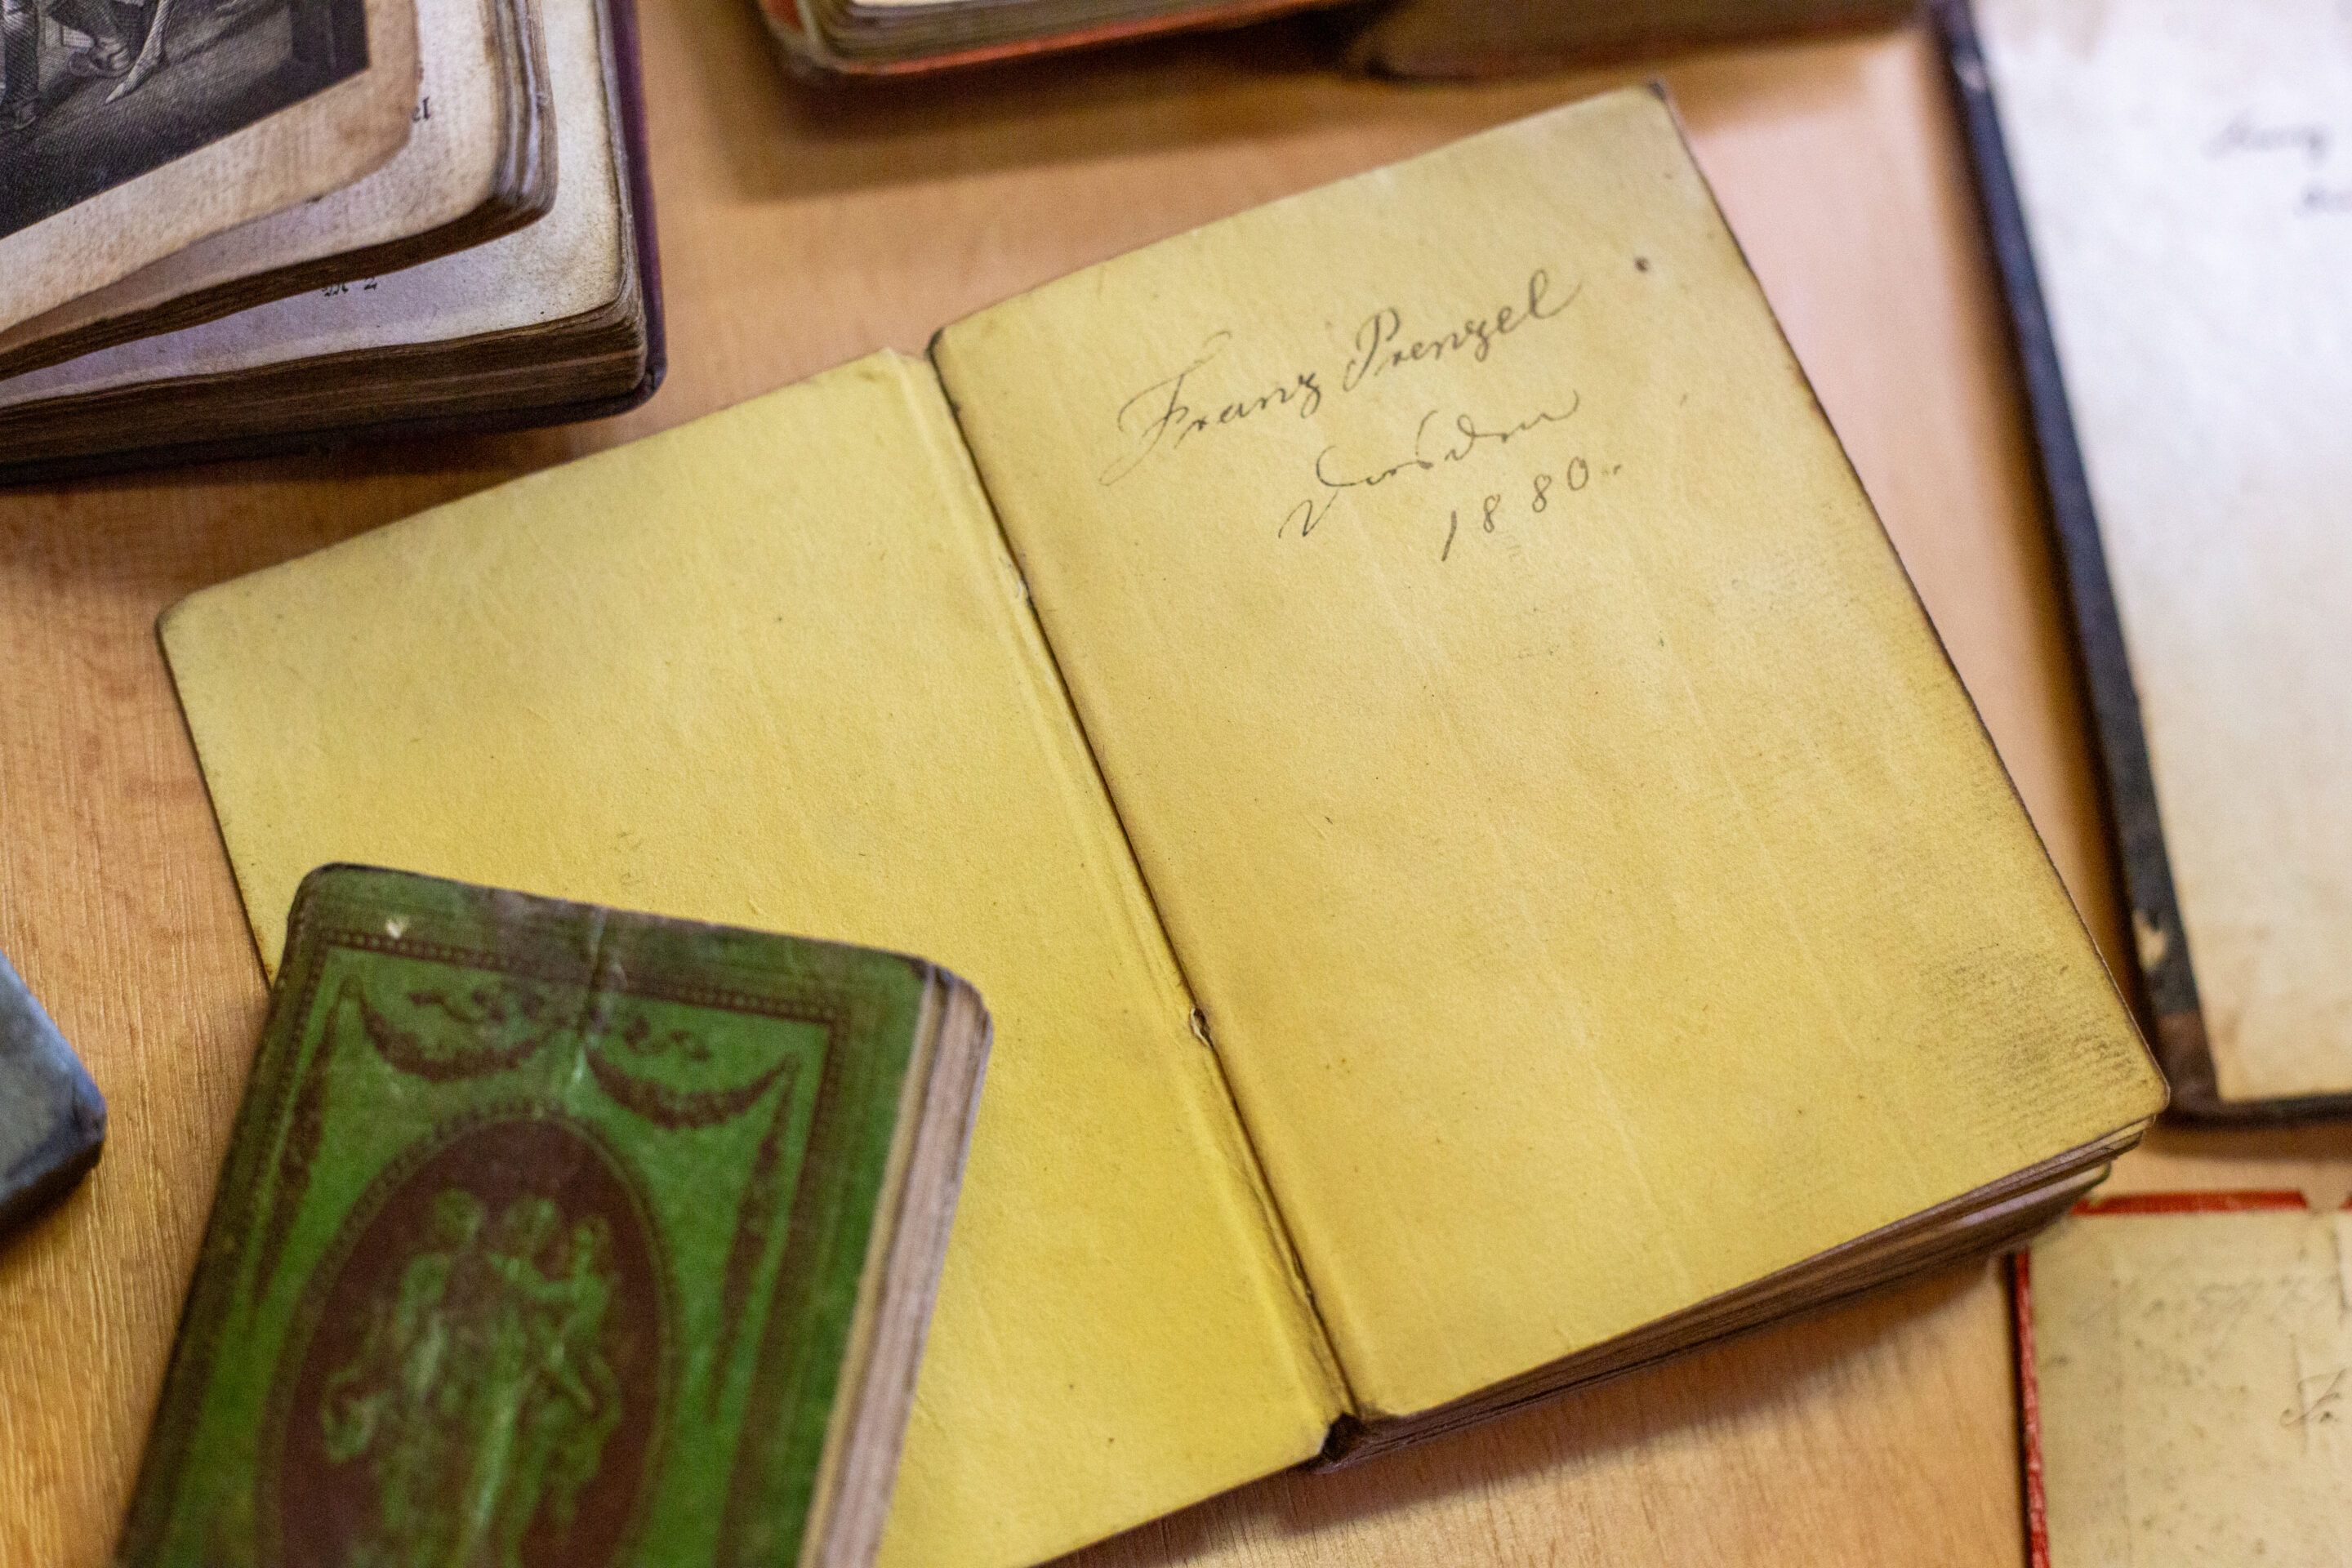 Franz Prenzel
Dresden
1880.